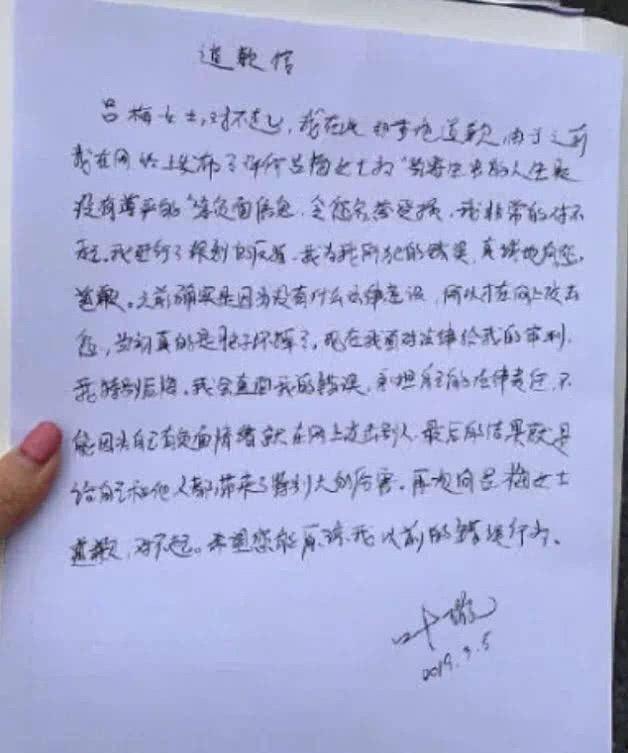 道歉信
吕梅女士,对不起,我在此郑重地道歉,由于之前
我在网络上发布了评价吕梅女士为"当寄生虫的人生是
没有尊严的"等负面信息,令您名誉受损,我非常的对不
起。我进行了深刻的反省,我为我所犯的错误,真诚地向您
道歉。之前确实是因为没有什么法律意识,所以才在网上攻击
您,当初真的是脑子坏掉了,现在我面对法律给我的审判,
我特别后悔。我会直面我的错误,承担自己的法律责任,不
能因为自己有负面情绪就在网上攻击别人,最后的结果就是
给自己和他人都带来了特别大的伤害。再次向吕梅女士
道歉,对不起。希望您能原谅我以前的错误行为。
叶
2019.3.5